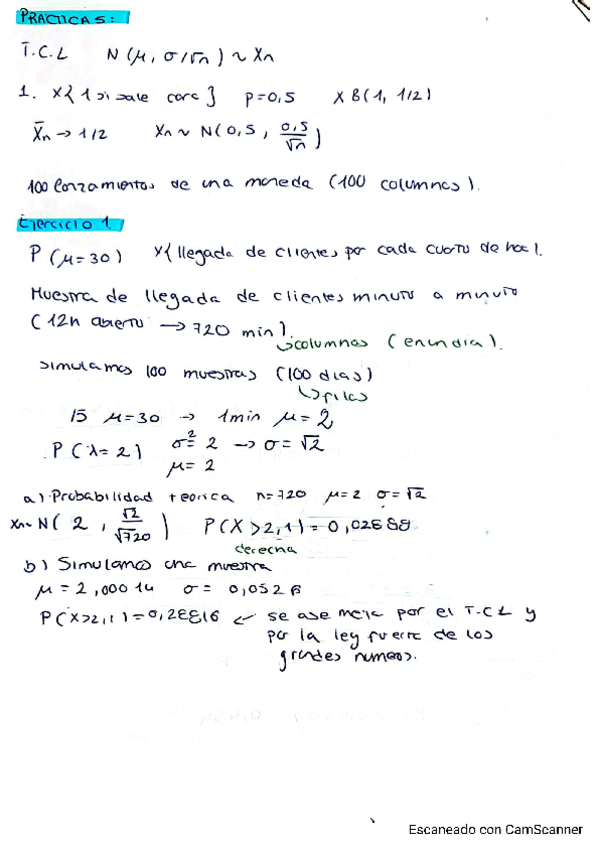 PRACTICA 5:
T.C.L N(μ, σ/√n) ~ Xn
1. X{ 1 si sale cara } p=0,5 X B(1, 1/2)
X̄n → 1/2 Xn ~ N(0,5, 0,5/√n)
100 lanzamientos de una moneda (100 columnas).
Ejercicio 1
P(μ=30) X{ llegada de clientes por cada cuarto de hora}.
Muestra de llegada de clientes minuto a minuto
(12h abierto → 720 min).
↳columnas (en un dia).
Simulamos 100 muestras (100 dias)
↳filas
15 μ=30 → 1min μ=2
P(λ=2) σ²=2 → σ=√2
μ=2
a) Probabilidad teorica n=720 μ=2 σ=√2
Xn~N(2, √2/√720) P(X>2,1)=0,02888
derecha
b) Simulamos una muestra
μ=2,00014 σ=0,0528
P(X>2,1)=0,28816 ← se asemeja por el T.C.L y
por la ley fuerte de los
grandes numeros.
Escaneado con CamScanner